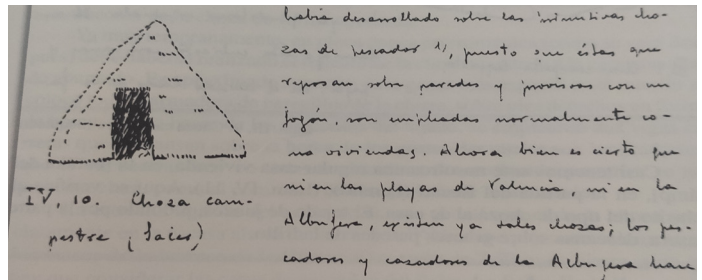 había desarrollado sobre las primitivas cho-
zas de pescador 1), puesto que éstas que
reposan sobre paredes y provistas con un
fogón, son empleadas normalmente co-
mo viviendas. Ahora bien es cierto que
ni en las playas de Valencia, ni en la
Albufera, existen ya tales chozas; los pes-
cadores y cazadores de la Albufera hace
IV, 10. Choza cam-
pestre (Saler)